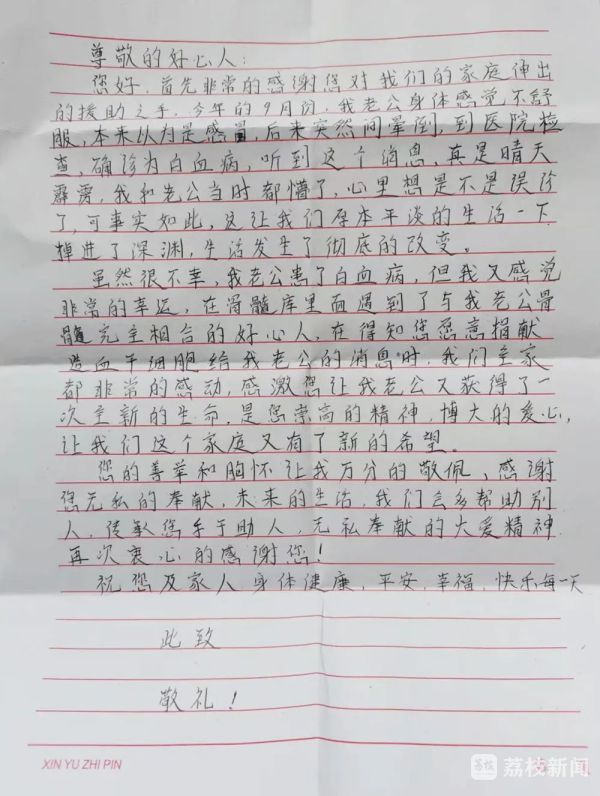 尊敬的好心人：
您好，首先非常的感谢您对我们的家庭伸出
的援助之手，今年的9月份，我老公身体感觉不舒
服，本来以为是感冒，后来突然间晕倒，到医院检
查，确诊为白血病，听到这个消息，真是晴天
霹雳，我和老公当时都懵了，心里想是不是误诊
了，可事实如此，这让我们原本平淡的生活一下
掉进了深渊，生活发生了彻底的改变。
虽然很不幸，我老公患了白血病，但我又感觉
非常的幸运，在骨髓库里面遇到了与我老公骨
髓完全相合的好心人，在得知您愿意捐献
造血干细胞给我老公的消息时，我们全家
都非常的感动，感激您让我老公又获得了一
次全新的生命，是您崇高的精神，博大的爱心，
让我们这个家庭又有了新的希望。
您的善举和胸怀让我万分的敬佩、感谢
您无私的奉献，未来的生活，我们会多帮助别
人，传承您乐于助人，无私奉献的大爱精神
再次衷心的感谢您！
祝您及家人身体健康，平安，幸福，快乐每一天
此致
敬礼！
XIN YU ZHI PIN
荔枝新闻